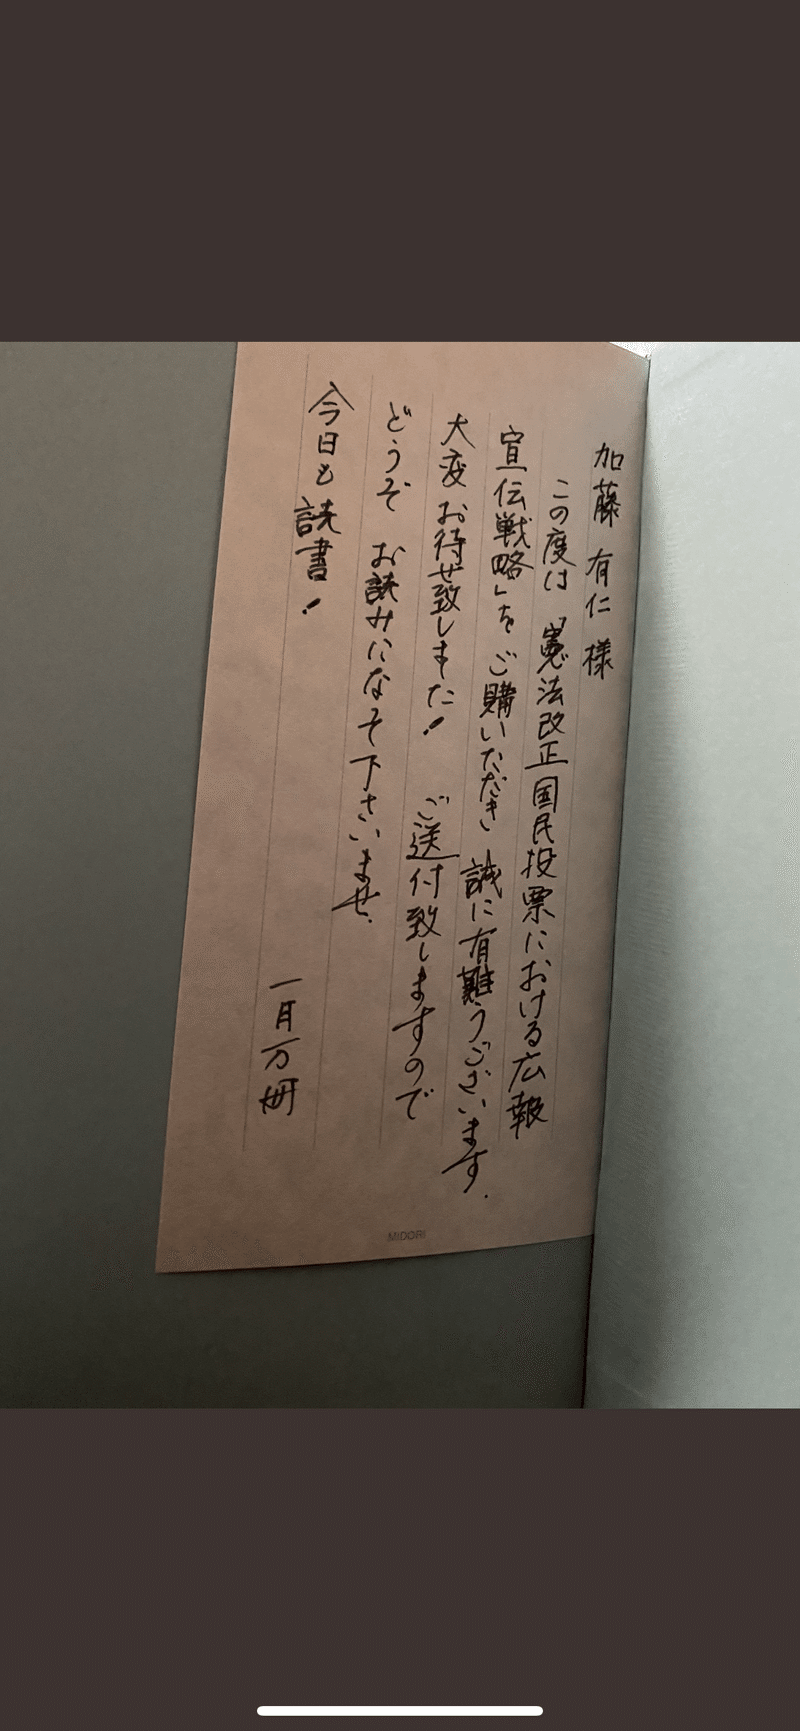 加藤 有仁 様
この度は「憲法改正国民投票における広報
宣伝戦略」をご購いただき 誠に有難うございます.
大変お待せ致しました! ご送付致しますので
どうぞ お読みになって下さいませ.
今日も読書!
一月万冊
MIDORI